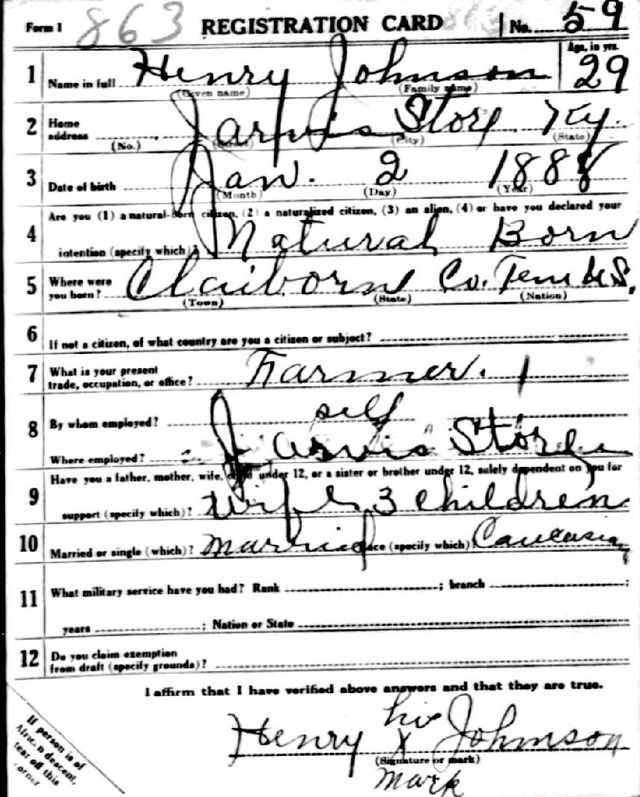 Form 1 863 REGISTRATION CARD No. 59
Age, in yrs.
1 Name in full Henry Johnson 29
(Given name) (Family name)
2 Home address Jarvis Store Ky.
(No.) (Street) (City) (State)
3 Date of birth Jan. 2 1888
(Month) (Day) (Year)
Are you (1) a natural-born citizen, (2) a naturalized citizen, (3) an alien, (4) or have you declared your
4 intention (specify which)? Natural Born
5 Where were you born? Claiborn Co. Tenn U.S.
(Town) (State) (Nation)
6 If not a citizen, of what country are you a citizen or subject?
7 What is your present trade, occupation, or office? Farmer.
8 By whom employed? self
Where employed? Jarvis Store
Have you a father, mother, wife, child under 12, or a sister or brother under 12, solely dependent on you for
9 support (specify which)? wife 3 children
10 Married or single (which)? Married Race (specify which)? Caucasian
11 What military service have you had? Rank ; branch ;
years ; Nation or State
12 Do you claim exemption from draft (specify grounds)?
I affirm that I have verified above answers and that they are true.
his
Henry X Johnson
(Signature or mark)
mark
If person is of
African descent,
tear off this
corner